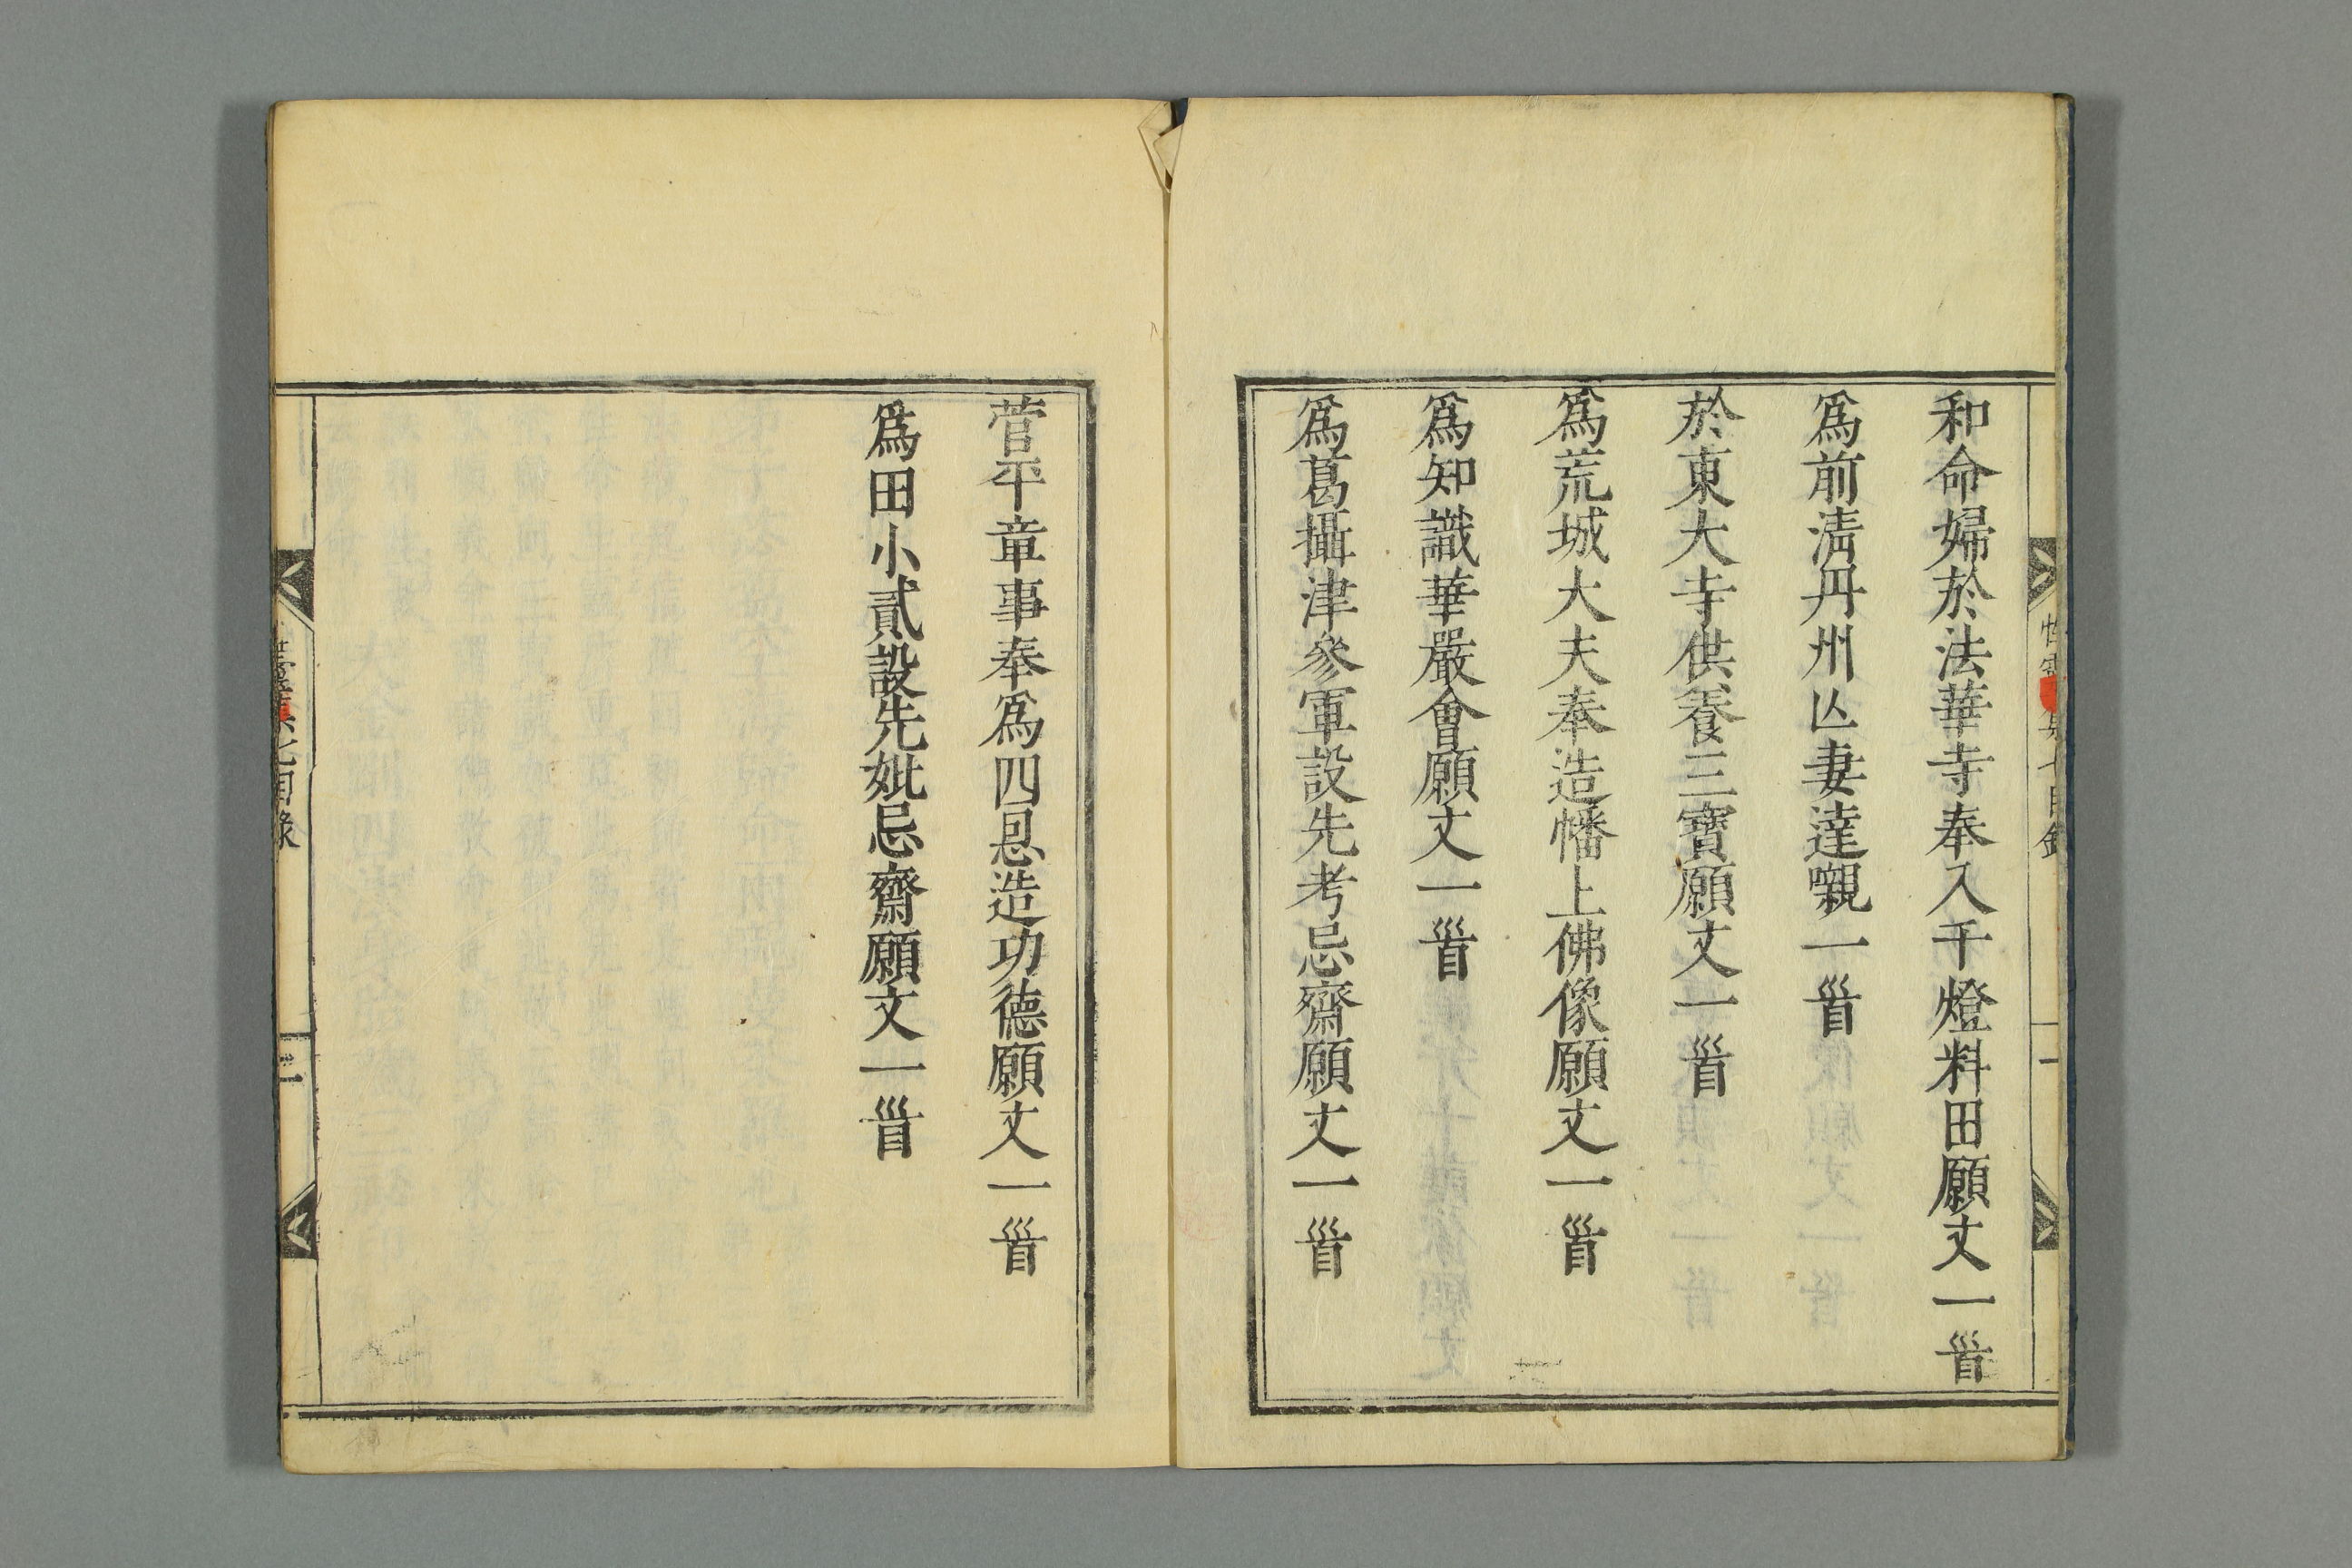 和命婦於法華寺奉入千燈料田願文一首
爲前淸丹州亾妻達嚫一首
於東大寺供養三寶願文一首
爲荒城大夫奉造幡上佛像願文一首
爲知識華嚴會願文一首
爲葛攝津參軍設先考忌齋願文一首
菅平章事奉爲四恩造功德願文一首
爲田小貳設先妣忌齋願文一首
七目錄
二